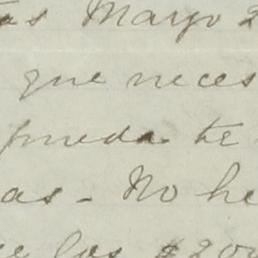 as Mayo 2
que neces
pueda te
as - No he
los $200